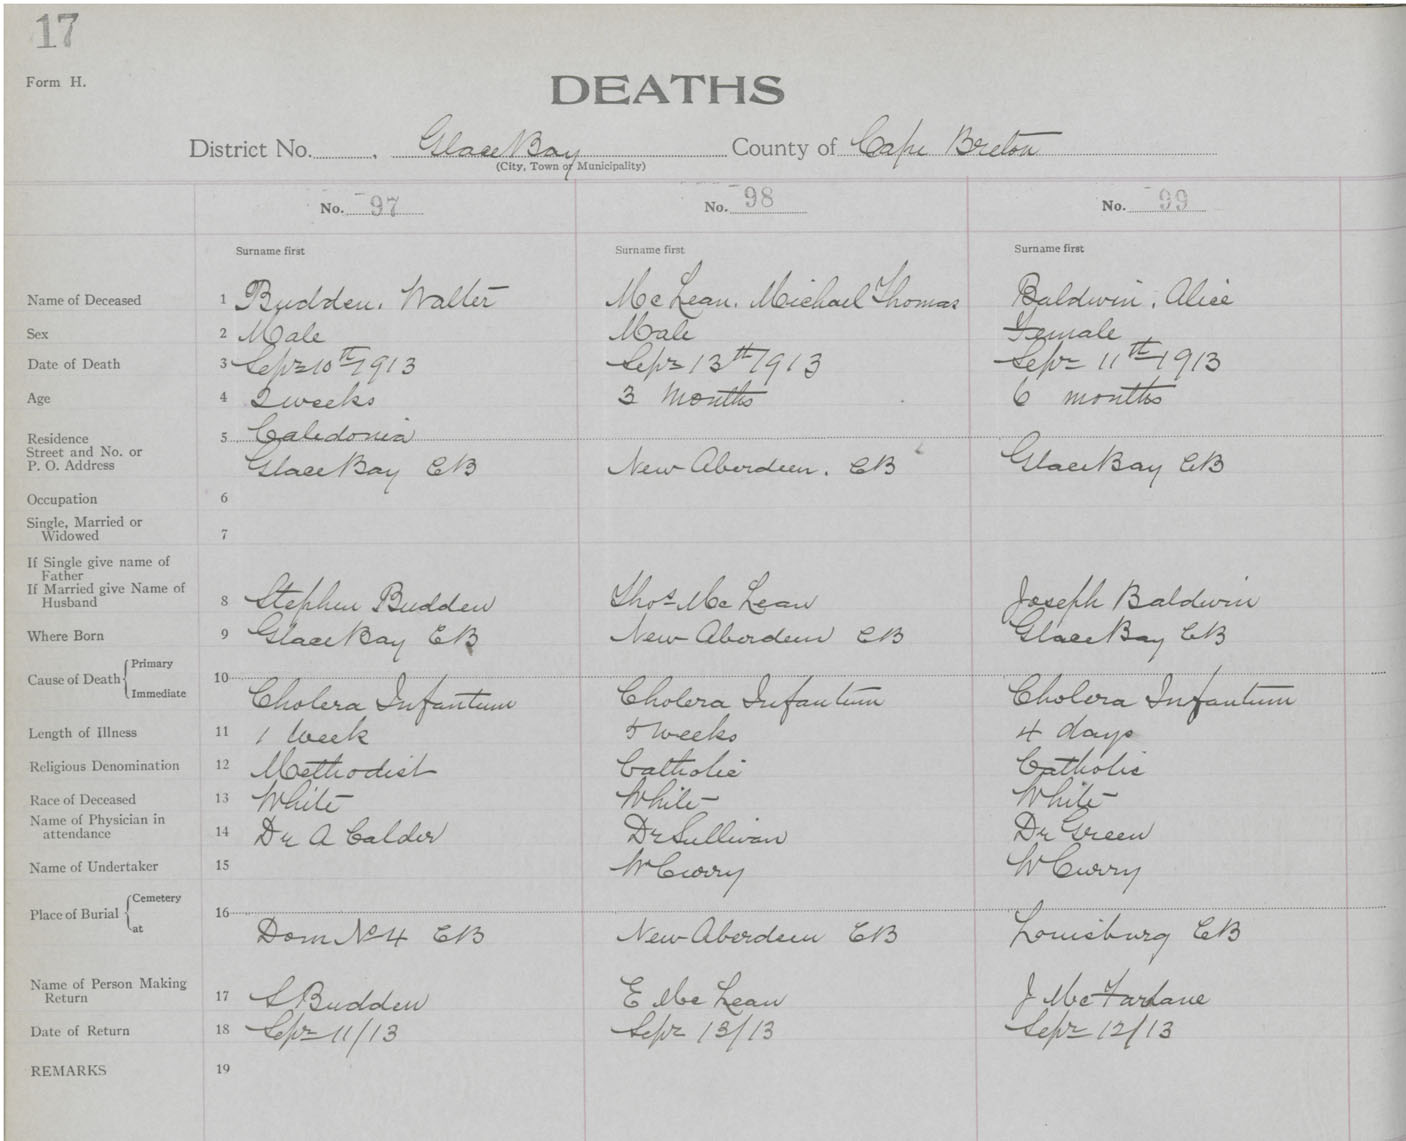 17
Form H.
DEATHS
District No. . Glace Bay County of Cape Breton
(City, Town or Municipality)
No. 97 No. 98 No. 99
Surname first Surname first Surname first
Name of Deceased 1 Budden, Walter McLean, Michael Thomas Baldwin, Alice
Sex 2 Male Male Female
Date of Death 3 Sept 10th 1913 Sept 13th 1913 Sept 11th 1913
Age 4 2 weeks 3 months 6 months
Residence 5 Caledonia
Street and No. or
P. O. Address Glace Bay CB New Aberdeen. CB Glace Bay CB
Occupation 6
Single, Married or
Widowed 7
If Single give name of
Father
If Married give Name of
Husband 8 Stephen Budden Thos McLean Joseph Baldwin
Where Born 9 Glace Bay CB New Aberdeen CB Glace Bay CB
Cause of Death Primary 10
Immediate Cholera Infantum Cholera Infantum Cholera Infantum
Length of Illness 11 1 week 5 weeks 4 days
Religious Denomination 12 Methodist Catholic Catholic
Race of Deceased 13 White White White
Name of Physician in
attendance 14 Dr A Calder Dr Sullivan Dr Green
Name of Undertaker 15 W Curry W Curry
Place of Burial Cemetery 16
at Dom No 4 CB New Aberdeen CB Louisburg CB
Name of Person Making
Return 17 S Budden E McLean J McFarlane
Date of Return 18 Sept 11/13 Sept 13/13 Sept 12/13
REMARKS 19